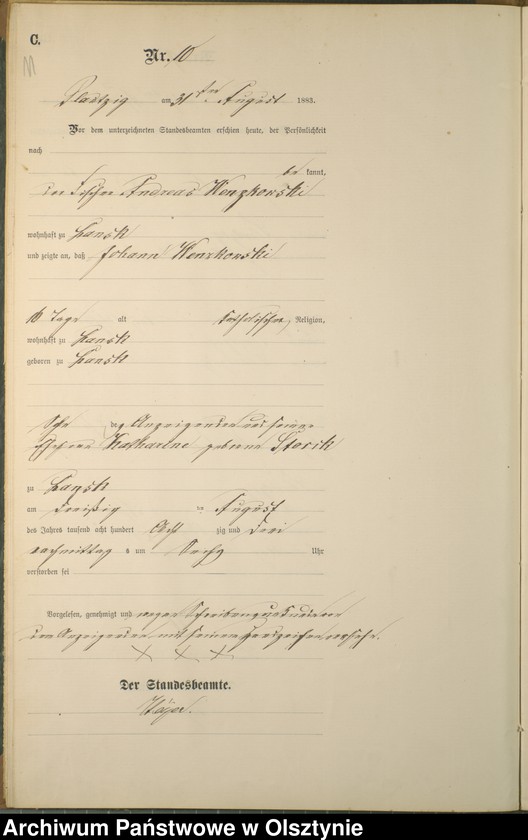 C.
Nr. 10
am 31ten August 1883.
Vor dem unterzeichneten Standesbeamten erschien heute, der Persönlichkeit
nach
be kannt,
der Fischer Andreas Wenzkowski
wohnhaft zu Lansk
und zeigte an, daß Johann Wenzkowski
16 Tage alt katholischer Religion,
wohnhaft zu Lansk
geboren zu Lansk
Sohn des Anzeigenden und seiner
Ehefrau Katharine geborene
zu Lansk
am dreißig ten August
des Jahres tausend acht hundert acht zig und drei
nachmittag s um sechs Uhr
verstorben sei
Vorgelesen, genehmigt und wegen Schreibensunkunde von
dem Anzeigenden mit seinem Handzeichen versehn.
X X X
Der Standesbeamte.
Archiwum Państwowe w Olsztynie